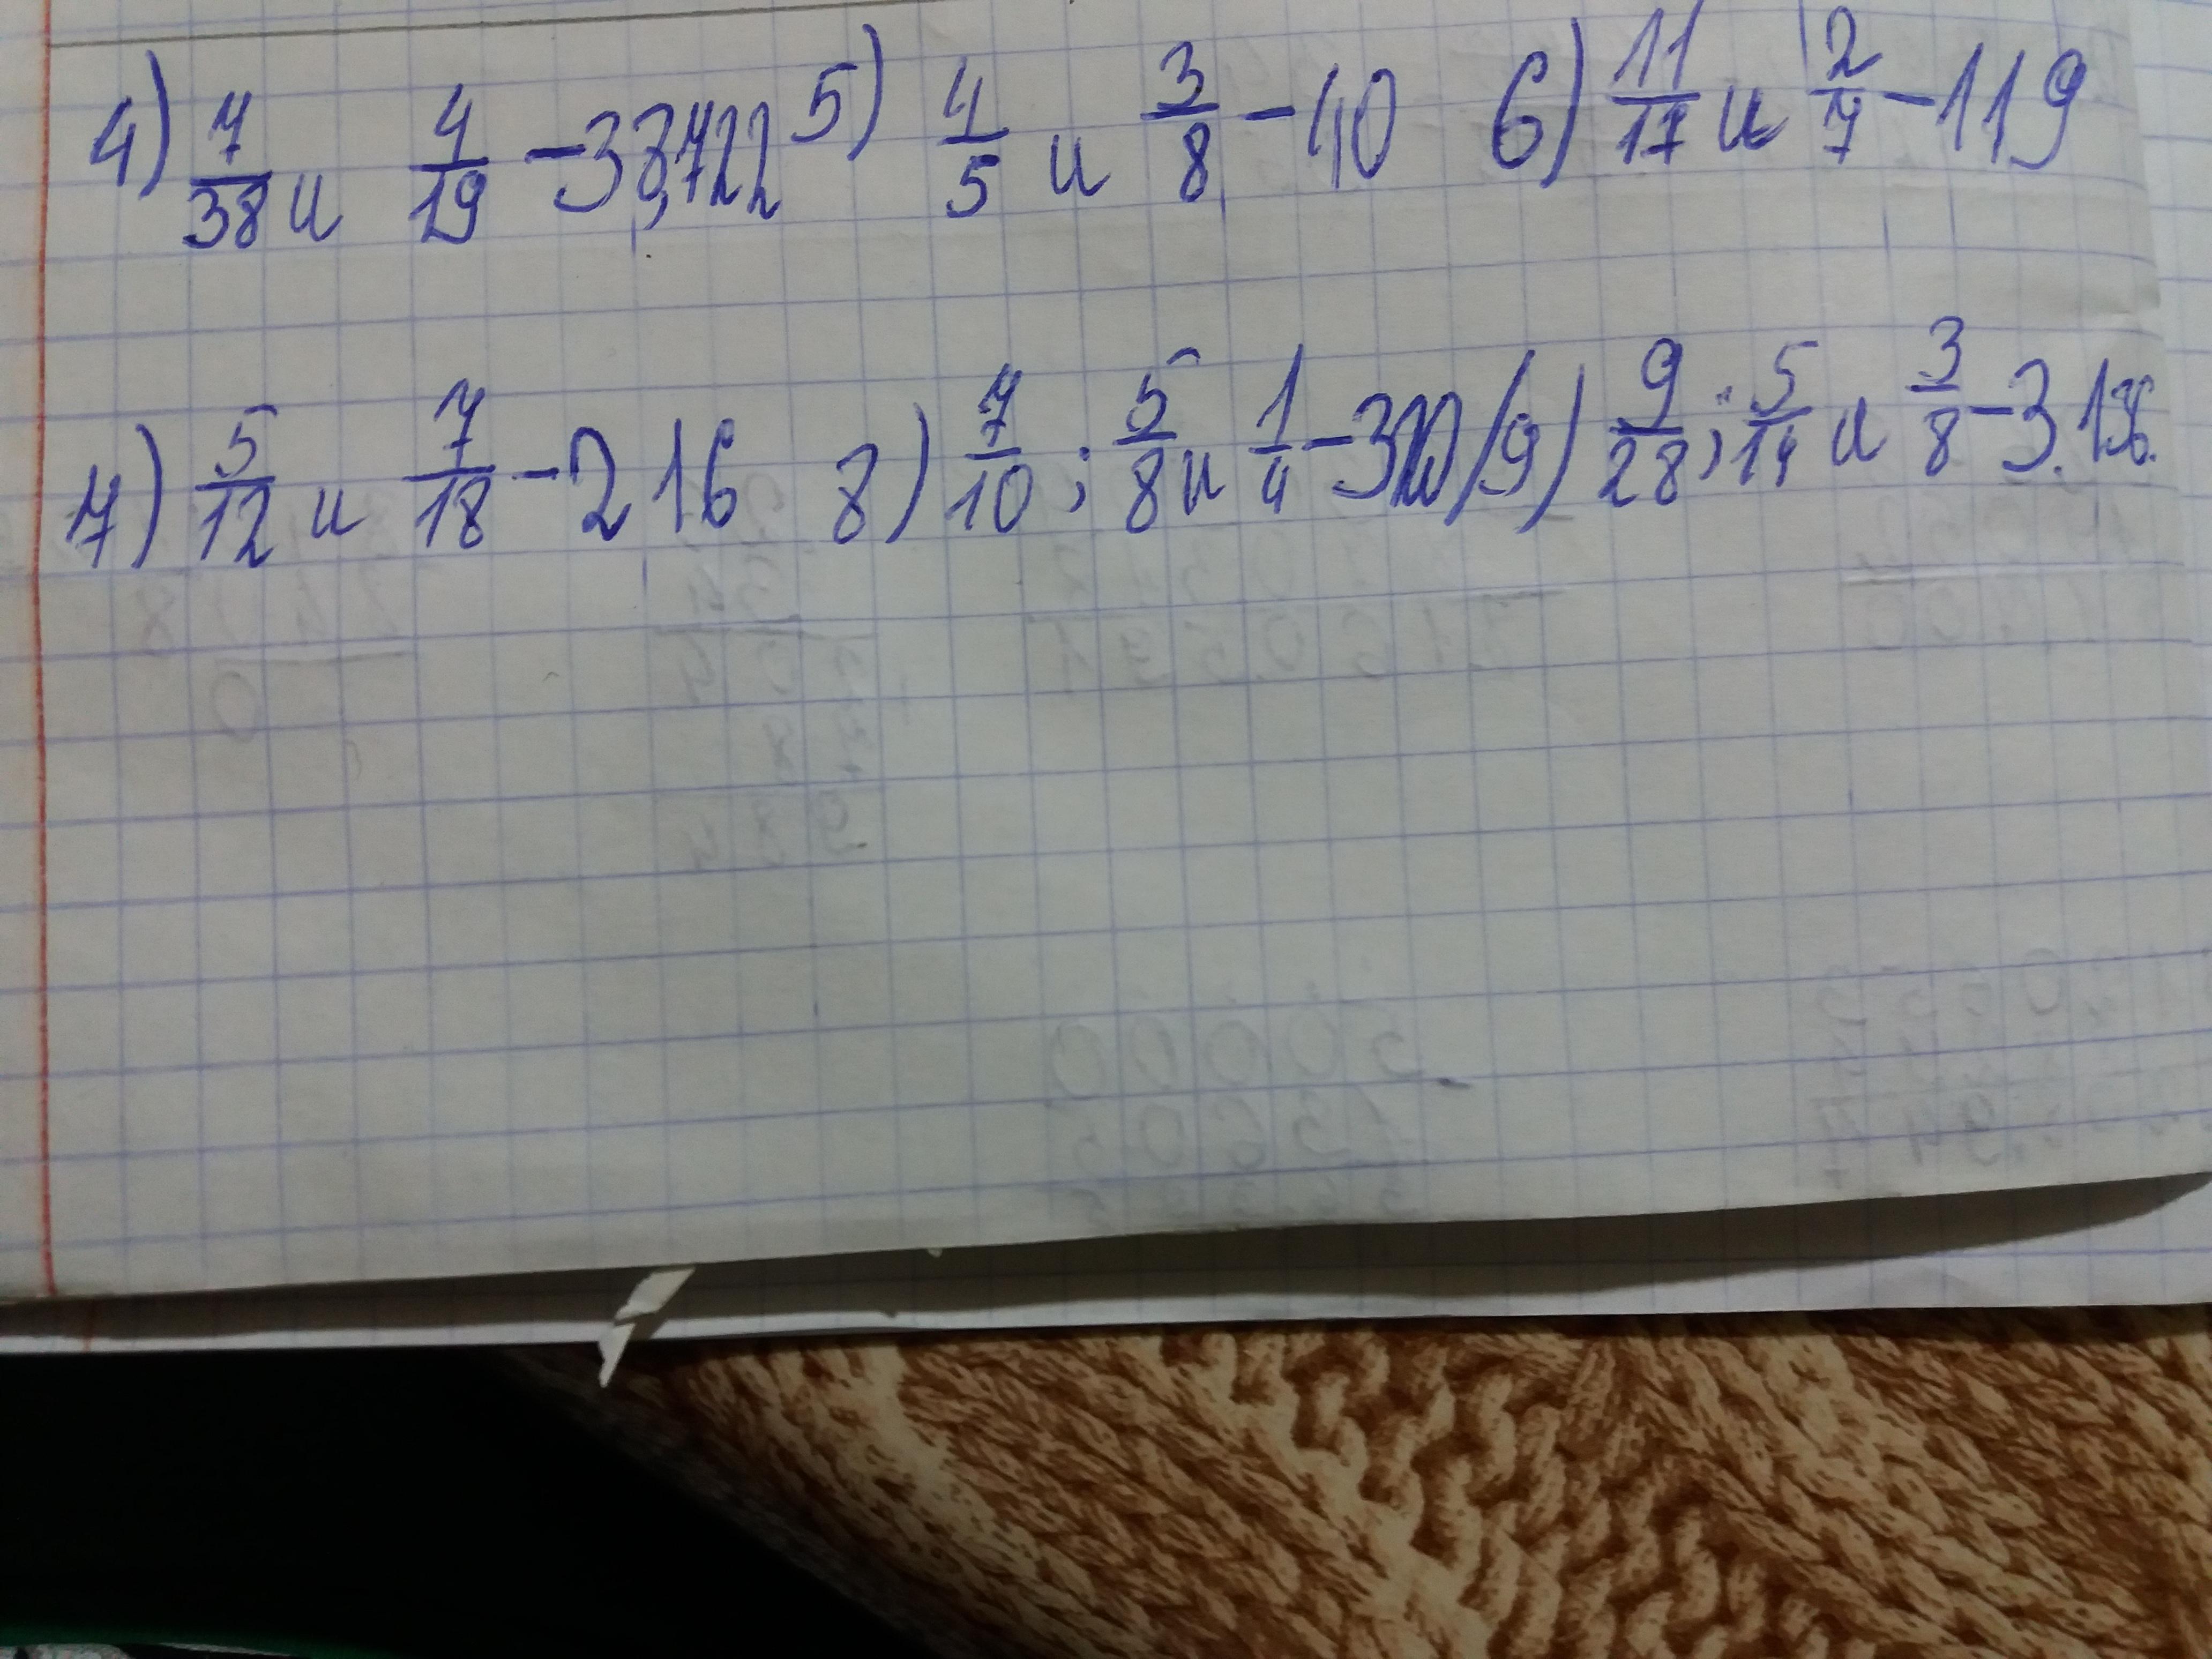 4) 7/38 и 4/19 - 38,722 5) 4/5 и 3/8 - 40 6) 11/17 и 2/7 - 119
7) 5/12 и 7/18 - 216 8) 7/10; 5/8 и 1/4 - 320 / 9) 9/28; 5/14 и 3/8 - 3.136.